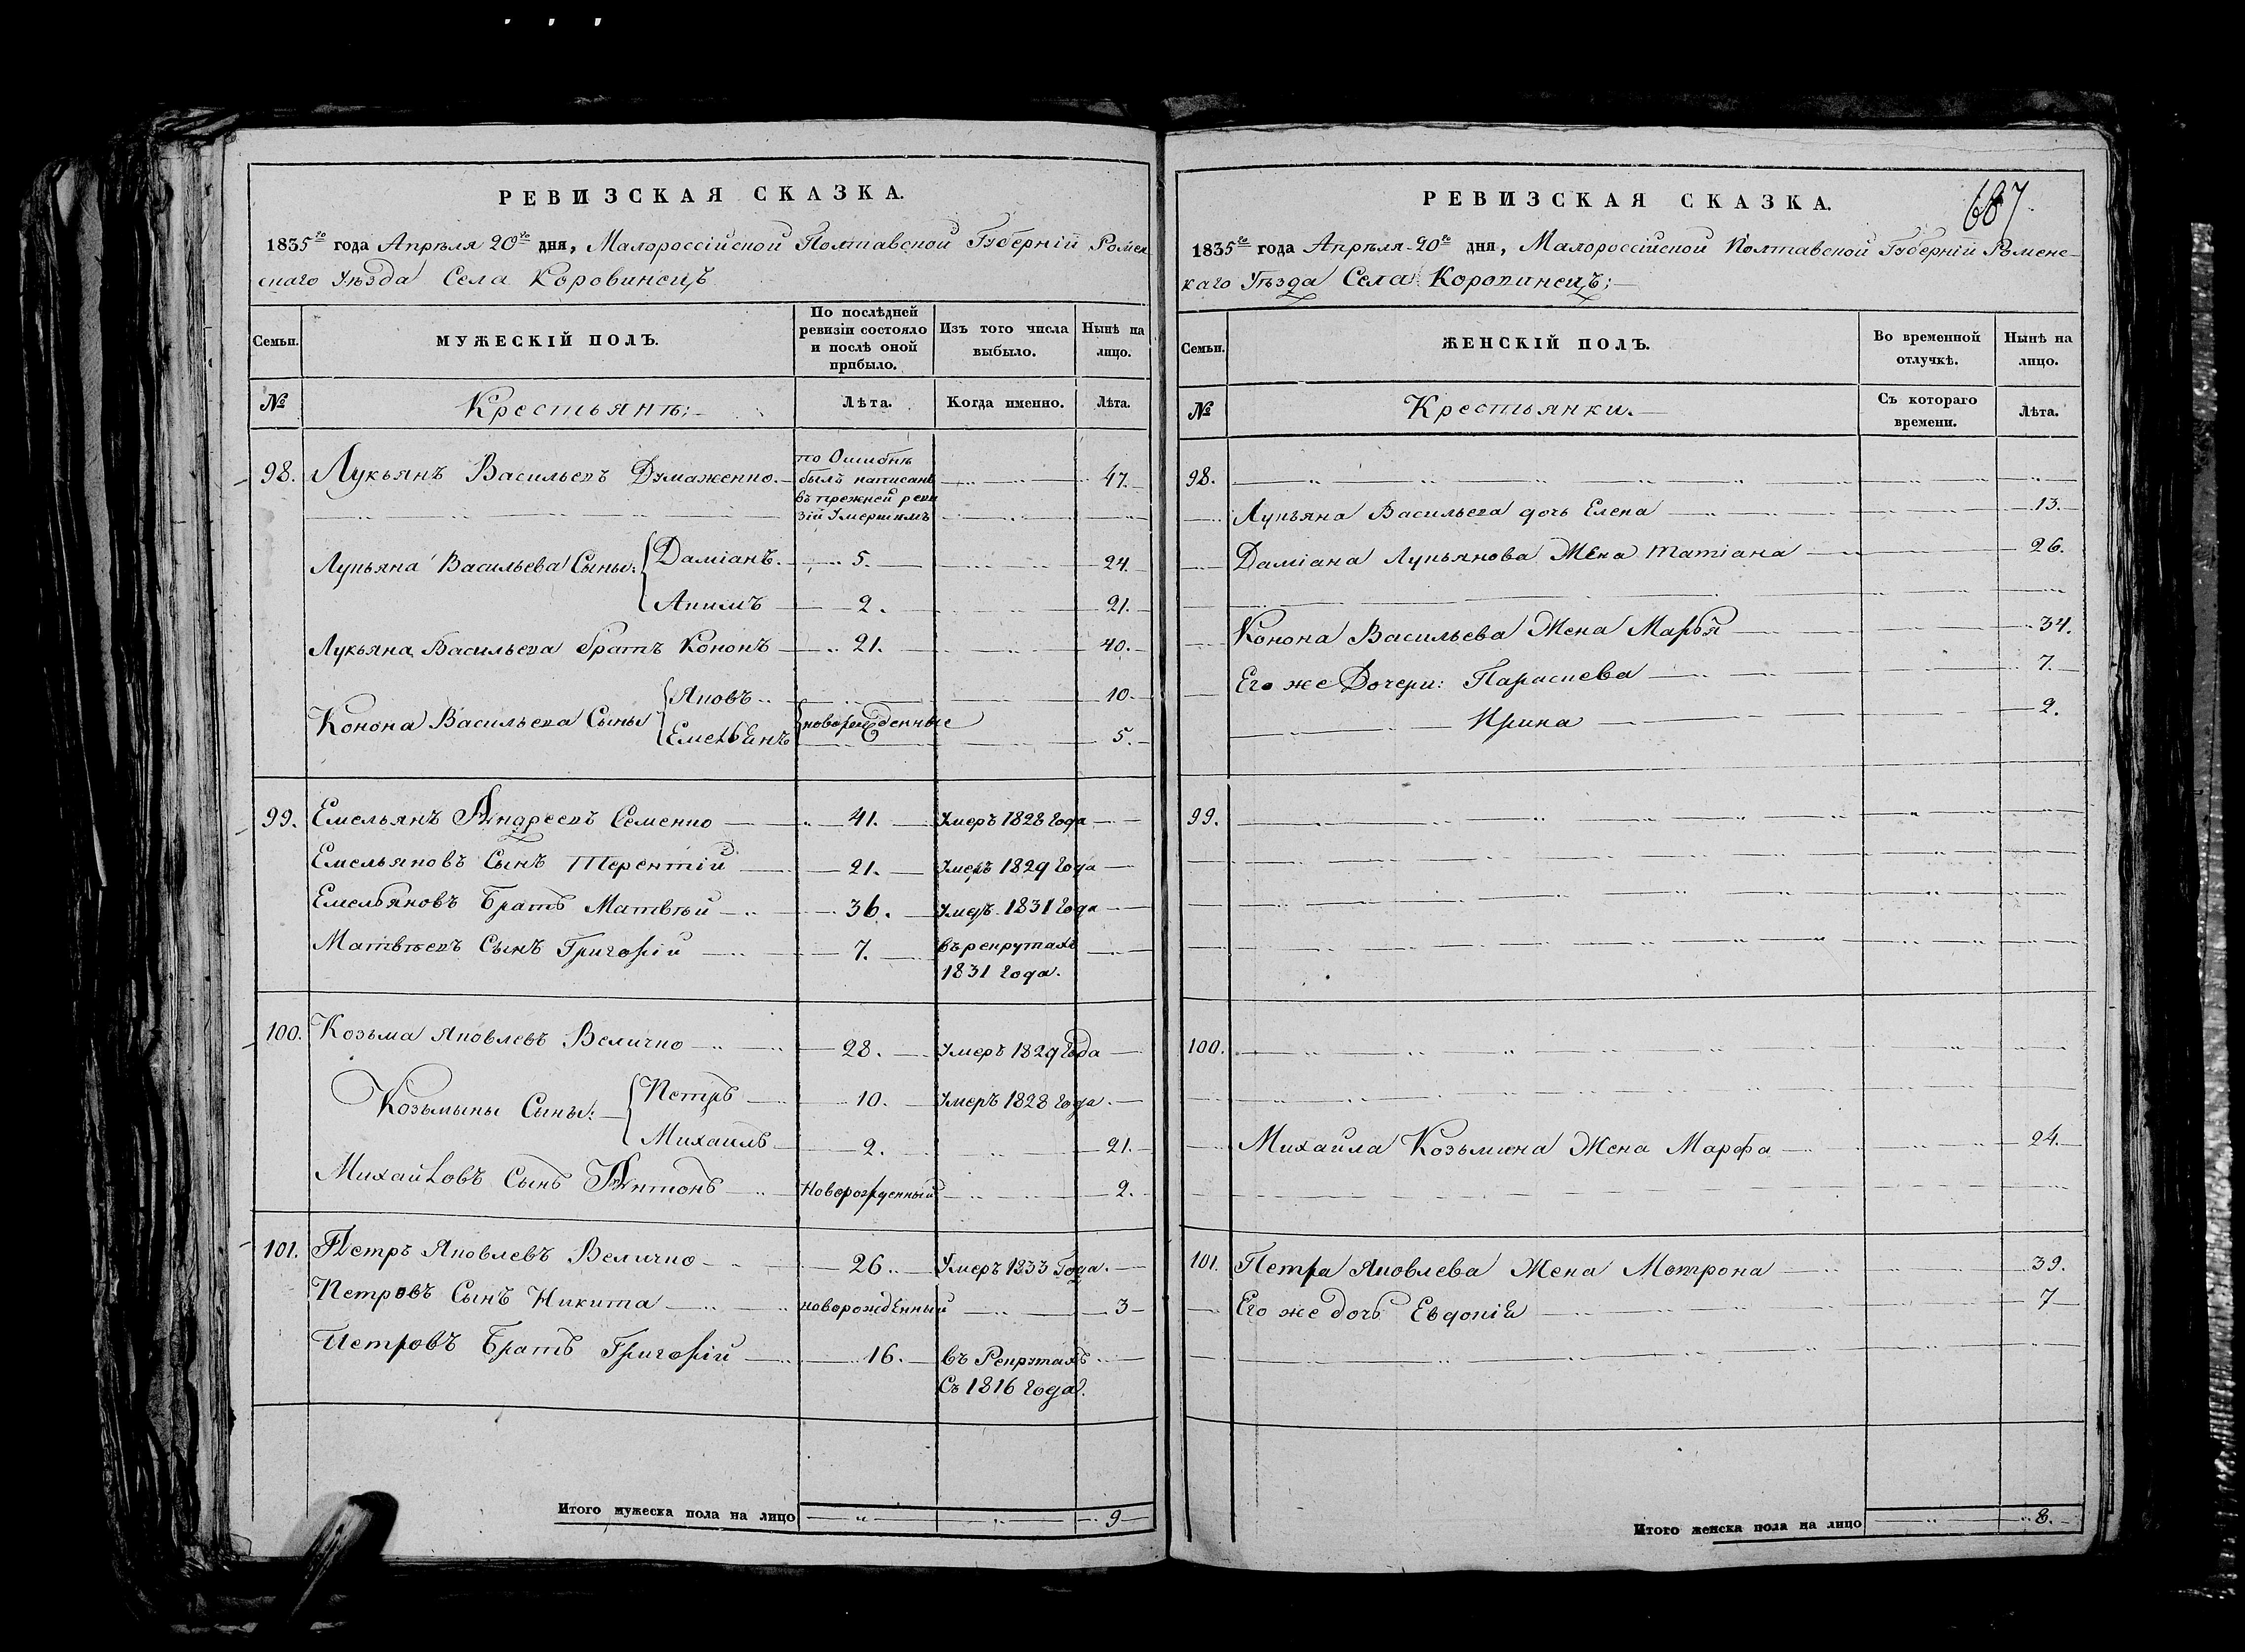 РЕВИЗСКАЯ СКАЗКА.
1835го года Апрѣля 20го дня, Малороссійской Полтавской Губерніи Ромен
скаго Уѣзда Села Коровинецъ
Семьи.
МУЖЕСКІЙ ПОЛЪ.
По послѣдней ревизіи состояло и послѣ оной прибыло.
Изъ того числа выбыло.
Нынѣ на лицо.
№ Крестьянъ: Лѣта. Когда именно. Лѣта.
98. Лукьянъ Васильевъ Думаженко. по Ошибкѣ былъ написанъ въ прежней реви зіи Умершимъ 47.
Лукьяна Васильева Сыны: Даміанъ. 5. 24.
Акимъ 2. 21.
Лукьяна Васильева братъ Кононъ 21. 40.
Конона Васильева Сыны Яковъ новорожденные 10.
Емельянъ 5.
99. Емельянъ Андреевъ Семенко 41. Умеръ 1828 года
Емельяновъ Сынъ Терентій 21. Умеръ 1829 года
Емельяновъ Братъ Матвѣй 36. Умеръ 1831 года
Матвѣевъ Сынъ Григорій 7. въ рекрутахъ
1831 года.
100. Козьма Яковлевъ Величко 28. Умеръ 1829 Года
Козьмины Сыны: Петръ 10. Умеръ 1828 года.
Михаилъ 2. 21.
Михайловъ Сынъ Антонъ Новорожденный 2.
101. Петръ Яковлевъ Величко 26. Умеръ 1833 Года.
Петровъ Сынъ Никита новорожденный 3
Петровъ Братъ Григорій 16. въ Рекрутахъ.
Съ 1816 года.
Итого мужеска пола на лицо 9
РЕВИЗСКАЯ СКАЗКА.
687
1835го года Апрѣля 20го дня, Малороссійской Полтавской Губерніи Роменс-
каго Уѣзда Села Коровинецъ;
Семьи.
ЖЕНСКІЙ ПОЛЪ.
Во временной отлучкѣ.
Нынѣ на лицо.
№ Крестьянки. Съ котораго времени. Лѣта.
98.
Лукьяна Васильева дочь Елена 13.
Даміана Лукьянова Жена Татіана 26.
Конона Васильева Жена Марья 34.
Его же Дочери: Параскева 7.
Ирина 2.
99.
100.
Михаила Козьмина Жена Марфа 24.
101. Петра Яковлева Жена Мотрона 39.
Его же дочь Евдокія 7
Итого женска пола на лицо 8.